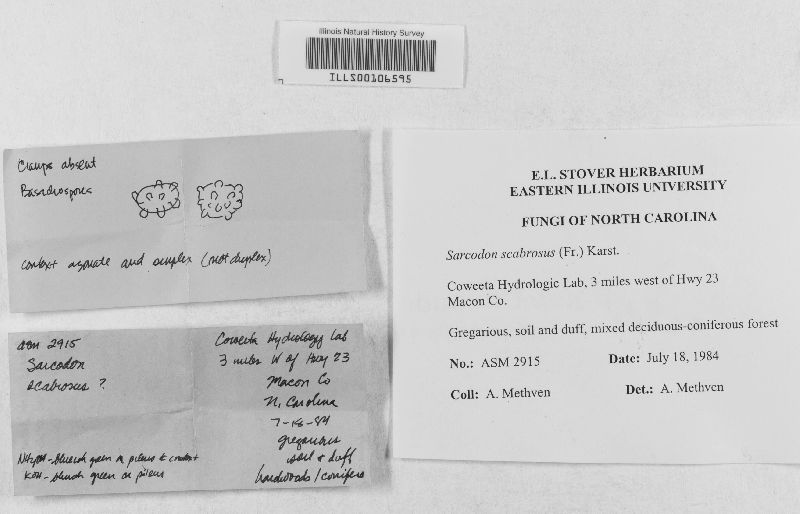 Illinois Natural History Survey
ILLS00106595
Clamps absent
Basidiospores
context agonate and simplex (not duplex)
E.L. STOVER HERBARIUM
EASTERN ILLINOIS UNIVERSITY
FUNGI OF NORTH CAROLINA
Sarcodon scabrosus (Fr.) Karst.
Coweeta Hydrologic Lab, 3 miles west of Hwy 23
Macon Co.
Gregarious, soil and duff, mixed deciduous-coniferous forest
No.: ASM 2915 Date: July 18, 1984
Coll: A. Methven Det.: A. Methven
ASM 2915
Sarcodon
scabrosus ?
NH4OH - bluish green on pileus & context
KOH - bluish green on pileus
Coweeta Hydrology Lab
3 miles W of Hwy 23
Macon Co
N. Carolina
7-18-84
gregarious
soil & duff
hardwoods / conifers